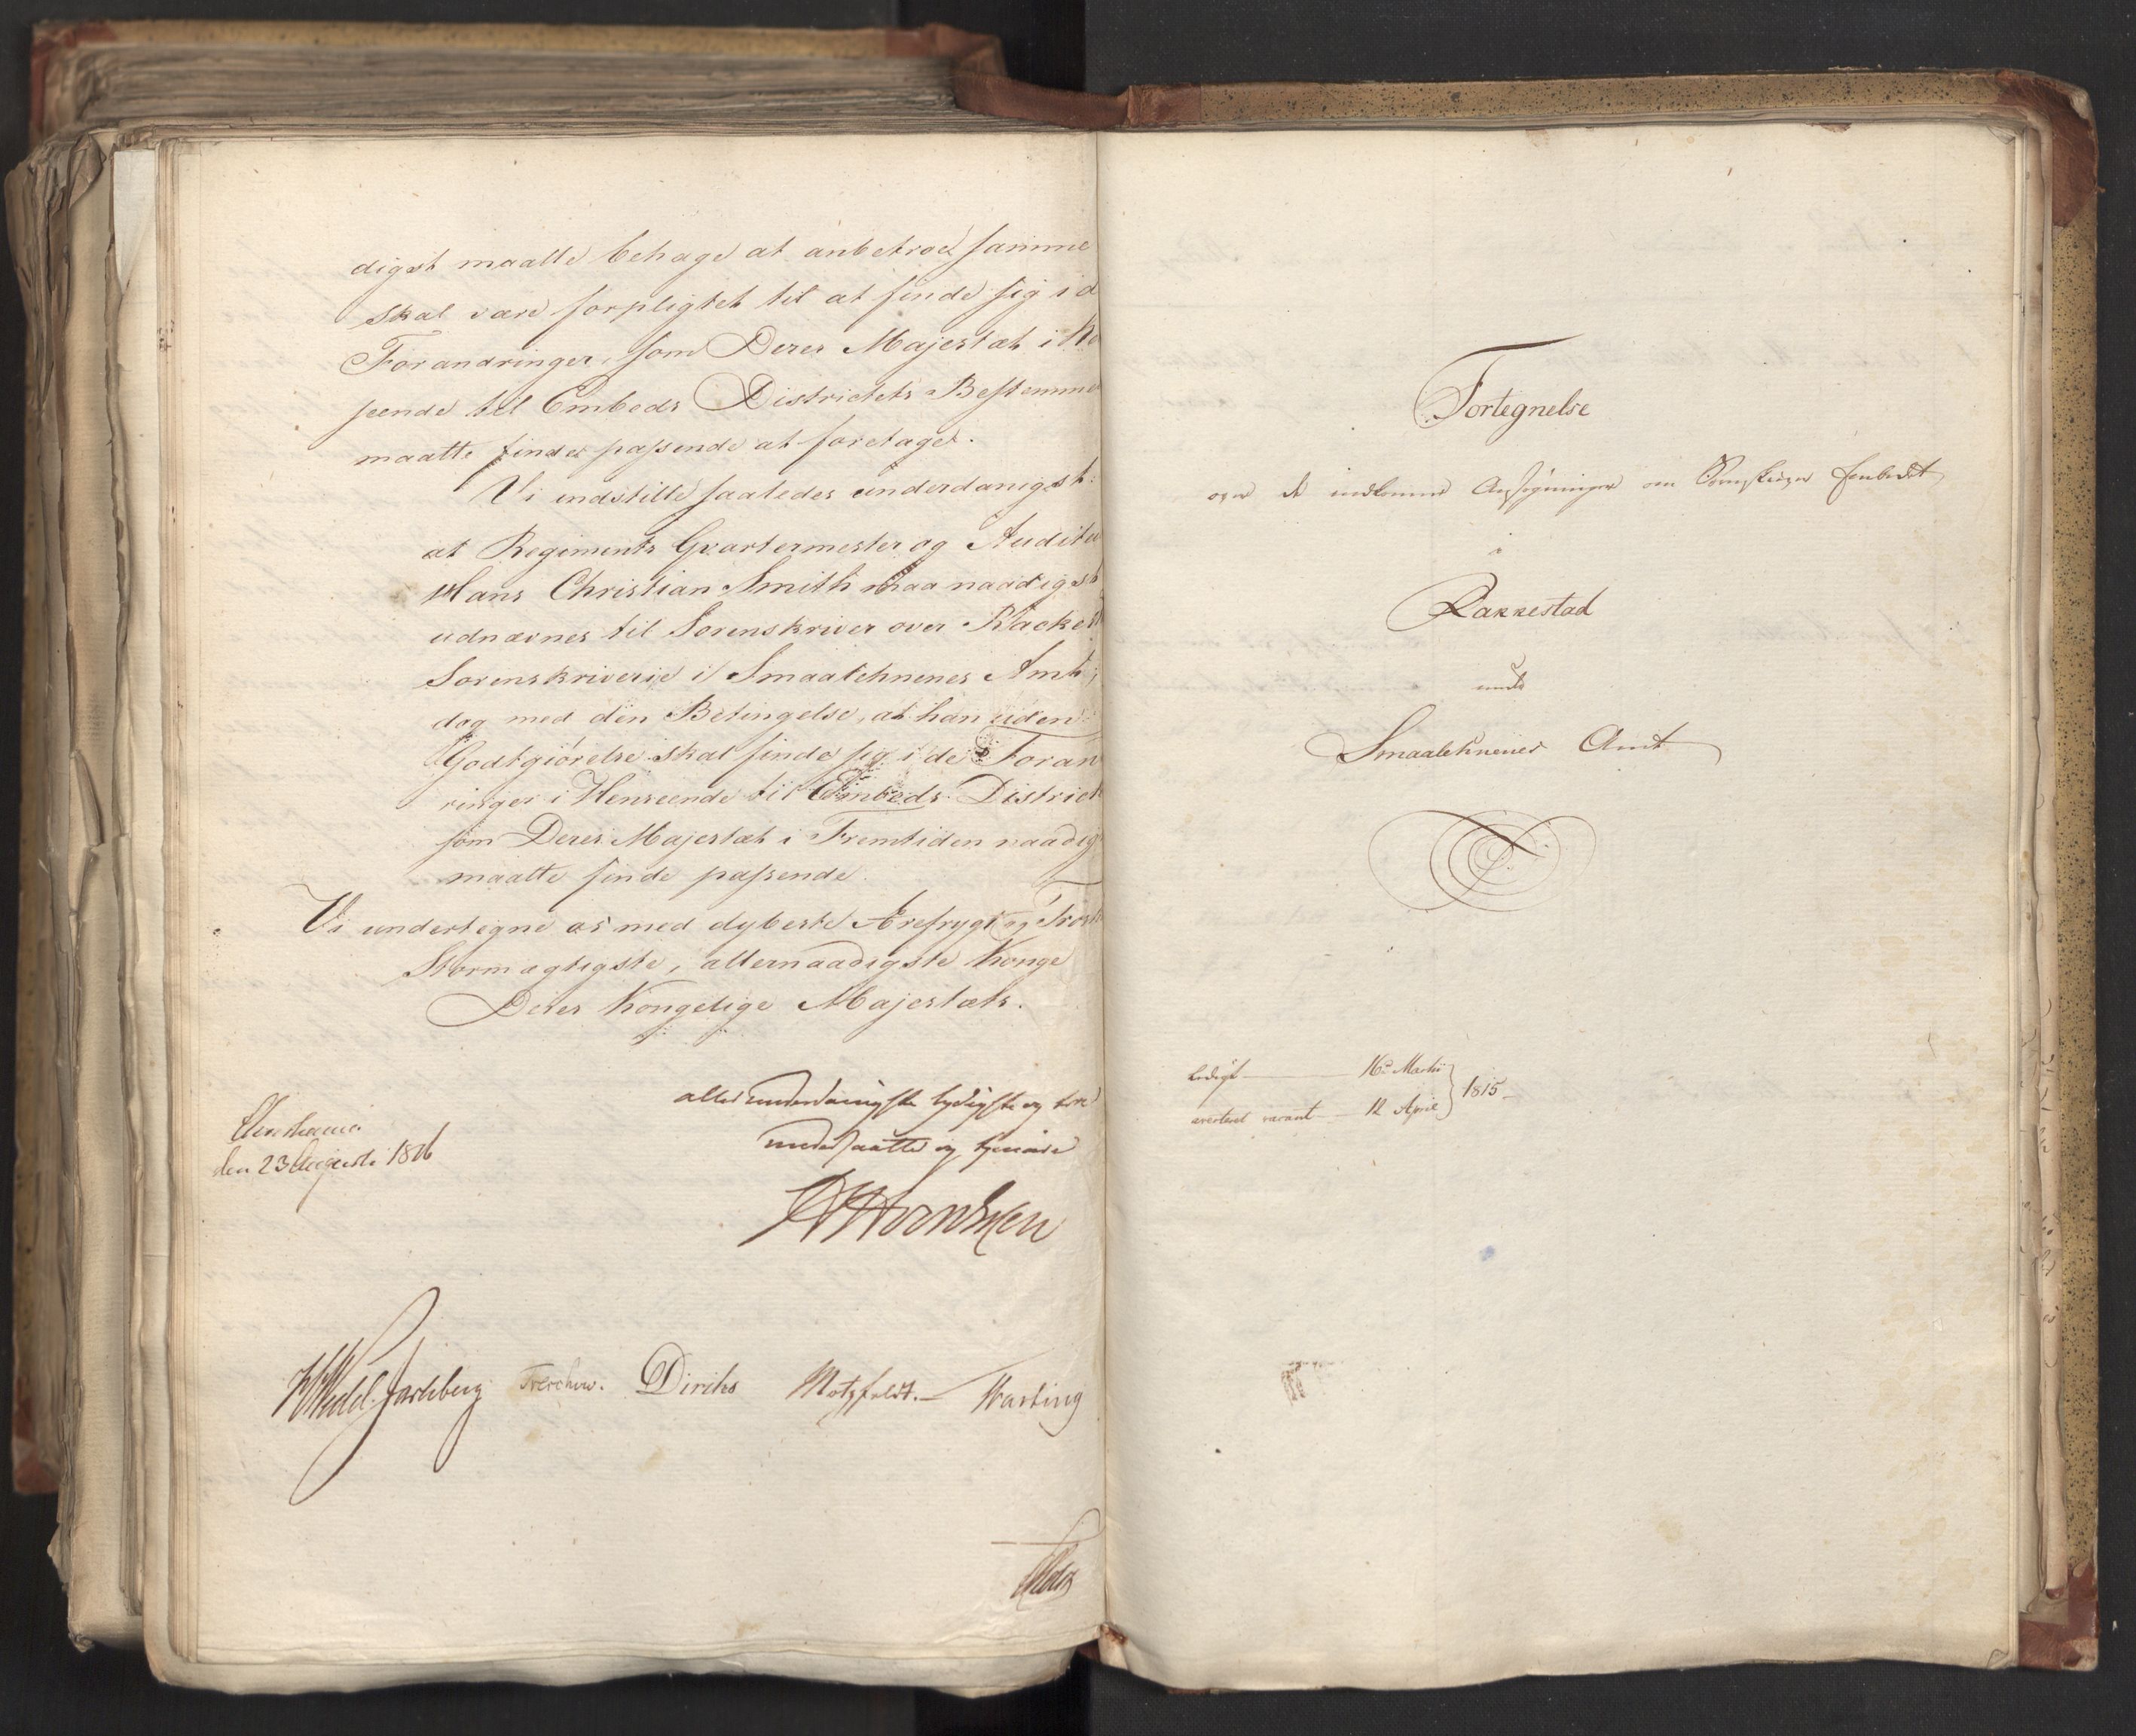 digst maatte behage at anbetroe samme
skal være forpligtet til at finde sig i d
Forandringer, som Deres Majestæt i He
seende til Embeds Districtets Bestemme
maatte finde passende at foretage.
Vi indstille saaledes underdanigst:
at Regiments Qvartermester og Auditeu
Hans Christian Smith maa naadigst
udnævnes til Sorenskriver over Rackest
Sorenskriverie i Smaalehnenes Amt,
dog med den Betingelse, at han uden
Godtgiørelse skal finde sig i de Foran
ringer i Henseende til Embeds District
som Deres Majestæt i Fremtiden naadig
maatte finde passende.
Vi undertegne os med dybeste Ærefrygt og Trosk
Stormægtigste, allernaadigste Konge
Deres Kongelige Majestæts.
allerunderdanigste lydigste og troe
undersaatter og tjenere
Christiania
den 23 Augusti 1816
HWedel Jarlsberg Treschow. Diriks Motzfeldt. Hasting
Fortegnelse
over de indkomne Ansøgninger om Sorenskriver Embedet
i
Rakkestad
under
Smaalehnenes Amt
Ledigt 16de Martii
averteret vacant 12 April 1815